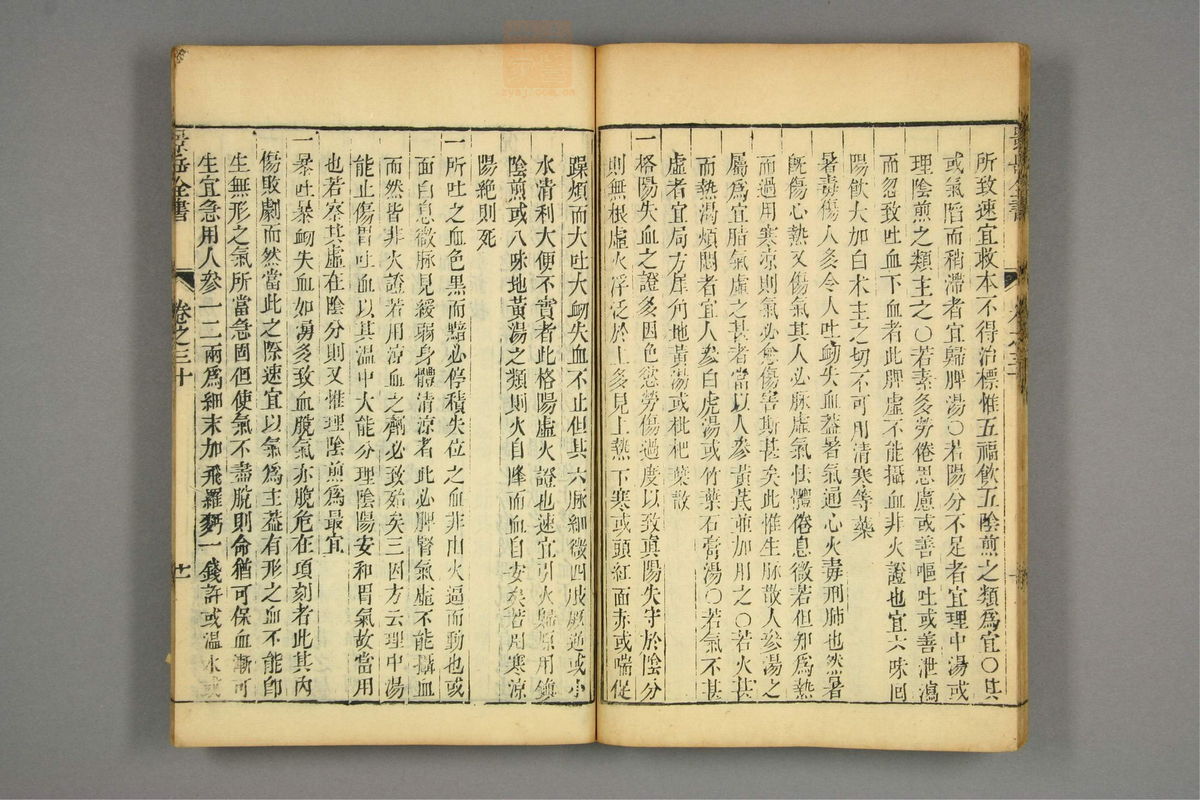 所致速宜救本不得治標惟五福飲五陰煎之類爲宜○其
或氣陷而稍滯者宜歸脾湯○若陽分不足者宜理中湯或
理陰煎之類主之○若素多勞倦思慮或善嘔吐或善泄瀉
而忽致吐血下血者此脾虛不能攝血非火證也宜六味回
陽飲大加白朮主之切不可用清寒等藥
暑毒傷人多令人吐衂失血蓋暑氣通心火毒刑肺也然暑
旣傷心熱又傷氣其人必脉虛氣怯體倦息微若但知爲熱
而過用寒凉則氣必愈傷害斯甚矣此惟生脉散人參湯之
屬爲宜腯氣虛之甚者當以人參黃芪並加用之○若火甚
而熱渴煩悶者宜人參白虎湯或竹葉石膏湯○若氣不甚
虛者宜局方犀角地黃湯或枇杷葉散
一格陽失血之證多因色慾勞傷過度以致眞陽失守於陰分
則無根虛火浮泛於上多見上熱下寒或頭紅面赤或喘促
躁煩而大吐大衂失血不止但其六脉細微四肢厥逆或小
水清利大便不實者此格陽虛火證也速宜引火歸原用鎮
陰煎或八味地黃湯之類則火自降而血自安矣若用寒凉
陽絕則死
一所吐之血色黑而黯必停積失位之血非由火逼而動也或
面白息微脉見緩弱身體清凉者此必脾腎氣虛不能攝血
而然皆非火證若用凉血之劑必致殆矣三因方云理中湯
能止傷胃吐血以其温中大能分理陰陽安和胃氣故當用
也若察其虛在陰分則又惟理陰煎爲最宜
一暴吐暴衂失血如湧多致血脫氣亦脫危在項刻者此其內
傷敗劇而然當此之際速宜以氣爲主蓋有形之血不能卽
生無形之氣所當急固但使氣不盡脫則命猶可保血漸可
生宜急用人參一二兩爲細末加飛羅麪一錢許或温水或
景岳全書
卷之三十
廿一